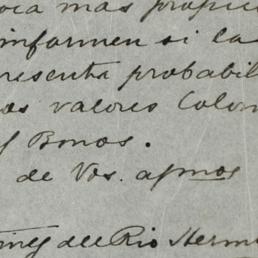 oca mas propici
informen si la
presenta probabil
os valores Colom
y Bonos.
de Vos. afmos
tinez del Rio Herm